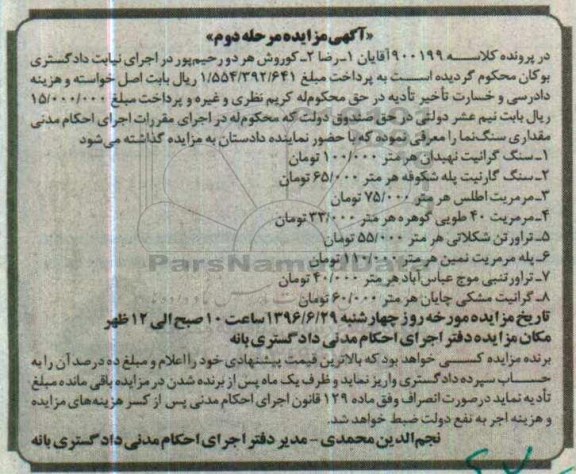 «آگهی مزایده مرحله دوم»
در پرونده کلاسه ۹۰۰۱۹۹ آقایان ۱ـ رضا ۲ـ کوروش هر دو رحیم‌پور در اجرای نیابت دادگستری
بوکان محکوم گردیده است به پرداخت مبلغ ۱/۵۵۴/۳۹۲/۶۴۱ ریال بابت اصل خواسته و هزینه
دادرسی و خسارت تأخیر تأدیه در حق محکوم‌له کریم نظری و غیره و پرداخت مبلغ ۱۵/۰۰۰/۰۰۰
ریال بابت نیم عشر دولتی در حق صندوق دولت که محکوم‌له در اجرای مقررات اجرای احکام مدنی
مقداری سنگ‌نما را معرفی نموده که با حضور نماینده دادستان به مزایده گذاشته می‌شود
۱ـ سنگ گرانیت نهبندان هر متر ۱۰۰/۰۰۰ تومان
۲ـ سنگ گارنیت پله شکوفه هر متر ۶۵/۰۰۰ تومان
۳ـ مرمریت اطلس هر متر ۷۵/۰۰۰ تومان
۴ـ مرمریت ۴۰ طولی گوهره هر متر ۳۳/۰۰۰ تومان
۵ـ تراورتن شکلاتی هر متر ۵۵/۰۰۰ تومان
۶ـ پله مرمریت نمین هر متر ۱۱۰/۰۰۰ تومان
۷ـ تراورتنبی موج عباس‌آباد هر متر ۴۰/۰۰۰ تومان
۸ـ گرانیت مشکی چایان هر متر ۶۰/۰۰۰ تومان
تاریخ مزایده مورخه روز چهارشنبه ۱۳۹۶/۶/۲۹ ساعت ۱۰ صبح الی ۱۲ ظهر
مکان مزایده دفتر اجرای احکام مدنی دادگستری بانه
برنده مزایده کسی خواهد بود که بالاترین قیمت پیشنهادی خود را اعلام و مبلغ ده درصد آن را به
حساب سپرده دادگستری واریز نماید و ظرف یک ماه پس از برنده شدن در مزایده باقی مانده مبلغ
تأدیه نماید در صورت انصراف وفق ماده ۱۲۹ قانون اجرای احکام مدنی پس از کسر هزینه‌های مزایده
و هزینه اجر به نفع دولت ضبط خواهد شد.
نجم‌الدین محمدی – مدیر دفتر اجرای احکام مدنی دادگستری بانه
ParsNamadData